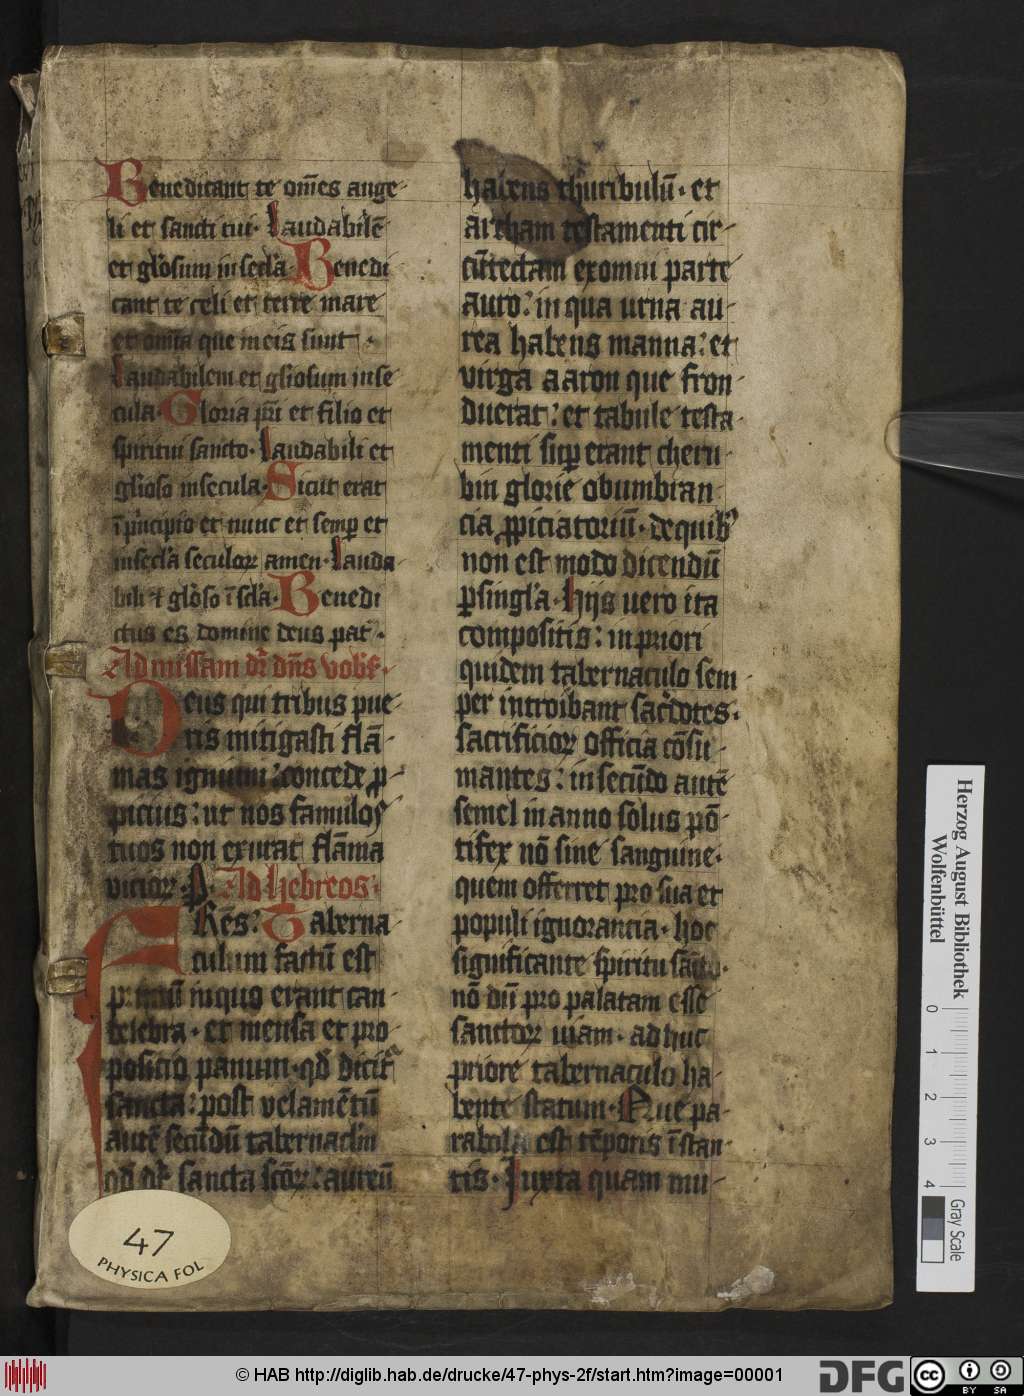 Benedicant te om̄es ange-
li et sancti tui· laudabilē
et gl'osum in secl'a· Benedi
cant te celi et terre mare
et om̄ia que in eis sunt ·
laudabilem et gl'iosum in se
cula· Gloria pr̄i et filio et
spiritui sancto· laudabili et
gl'ioso in secula· Sicut erat
ī pͥncipio et nunc et semp̲ et
in secl'a seculoꝝ amen· lauda
bili et gl'oso ī scl'a· Benedi
ctus es domine deus pat'·
Ad missam dr̄ dn̄s vob'·
Deus qui tribus pue-
ris mitigasti flā-
mas ignium: concede ꝓ-
picius: ut nos famulos
tuos non exurat flāma
vicioꝝ·P· Ad hebreos·
FRēs: Taberna-
culum factū est
primū in quo erant can-
delebra· et mensa et pro-
posicio panum· qd̄ dicit'
sancta: post velamētū
autē secūdū tabernacl'm
qd̄ dr̄ sancta scōꝝ: aureū
habens thuribulū· et
archam testamenti cir-
cūtectam ex omni parte
auro: in qua urna au-
rea habens manna: et
virga aaron que fron-
duerat: et tabule testa-
menti sup̲ erant cheru-
bin glorie obumbran-
cia ꝓpiciatoriū· de quib9
non est modo dicendū
ꝑ singl'a· Hijs vero ita
compositis: in priori
quidem tabernaculo sem-
per introibant sac'dotes·
sacrificioꝝ officia cōsu-
mantes: in secūdo autē
semel in anno solus pō-
tifex nō sine sanguine·
quem offerret pro sua et
populi ignorancia· hoc
significante spiritu sancto·
nō dū pro palatam esse
sanctoꝝ viam· ad huc
priore tabernaculo ha-
bente statum· Que pa-
rabola est tēporis īstan-
tis· Juxta quam mu-
47
PHYSICA FOL
Herzog August Bibliothek
Wolfenbüttel
0 1 2 3 4
Gray Scale
© HAB http://diglib.hab.de/drucke/47-phys-2f/start.htm?image=00001
DFG
cc BY SA